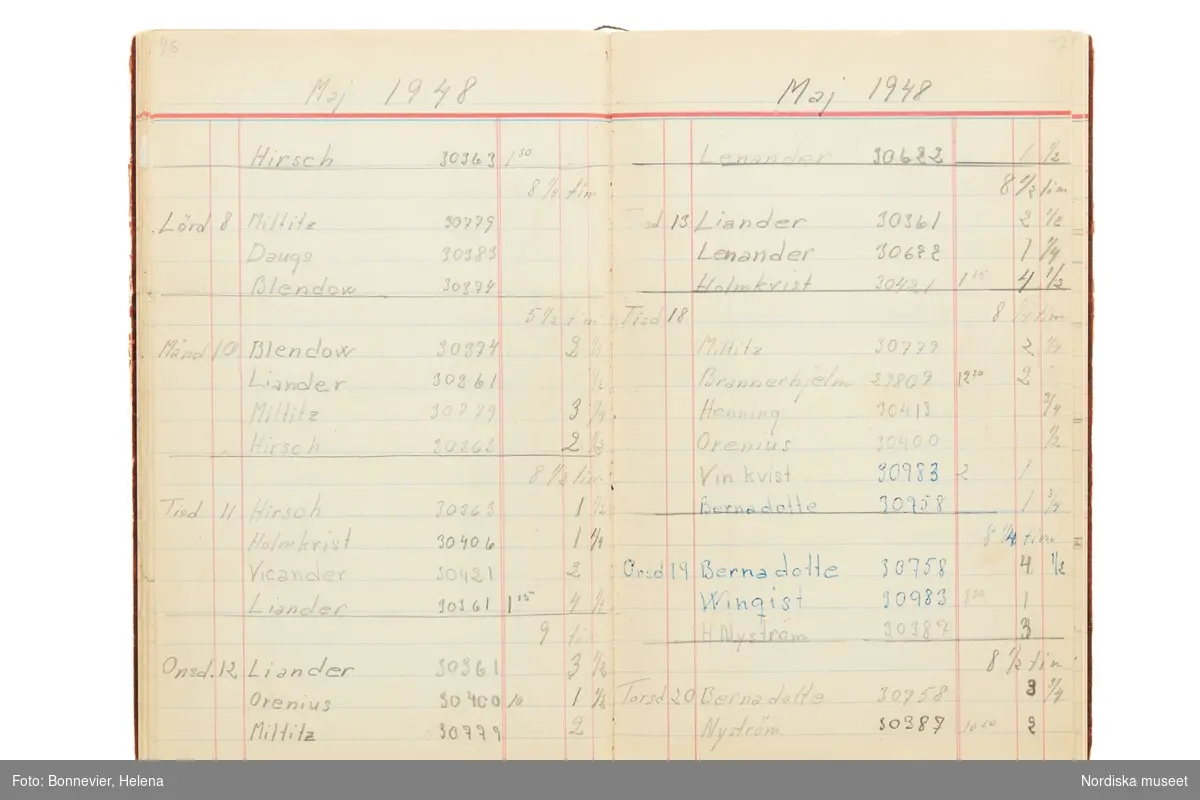 76
Maj 1948
Hirsch 30363 1 30
8 1/2 tim
Lörd 8 Miltitz 30779
Daugs 30383
Blendow 30374
5 1/2 tim
Månd 10 Blendow 30374 2
Liander 30361 1/2
Miltitz 30779 3
Hirsch 30363 2
8 1/2 tim
Tisd 11 Hirsch 30363 1 1/2
Holmkvist 30406 1 1/4
Vicander 30421 2
Liander 30361 1 15 4
9 tim
Onsd. 12 Liander 30361 3 1/2
Orenius 30400 10 1 1/2
Miltitz 30779 2
Maj 1948
Lenander 30622 1 1/2
8 1/2 tim
13 Liander 30361 2 1/2
Lenander 30622 1 1/4
Holmkvist 30421 1 15 4 1/2
Tisd 18 8 tim
Miltitz 30779 2 1/4
Brannerhjelm 29809 12 30 2
Henning 30413 3/4
Orenius 30400 1/2
Vinkvist 30983 2 1
Bernadotte 30758 1 3/4
8 1/4 tim
Onsd 19 Bernadotte 30758 4 1/2
Winqist 30983 1
H Nyström 30387 3
8 1/2 tim
Torsd 20 Bernadotte 30758 3 3/4
Nyström 30387 2
Foto: Bonnevier, Helena
Nordiska museet